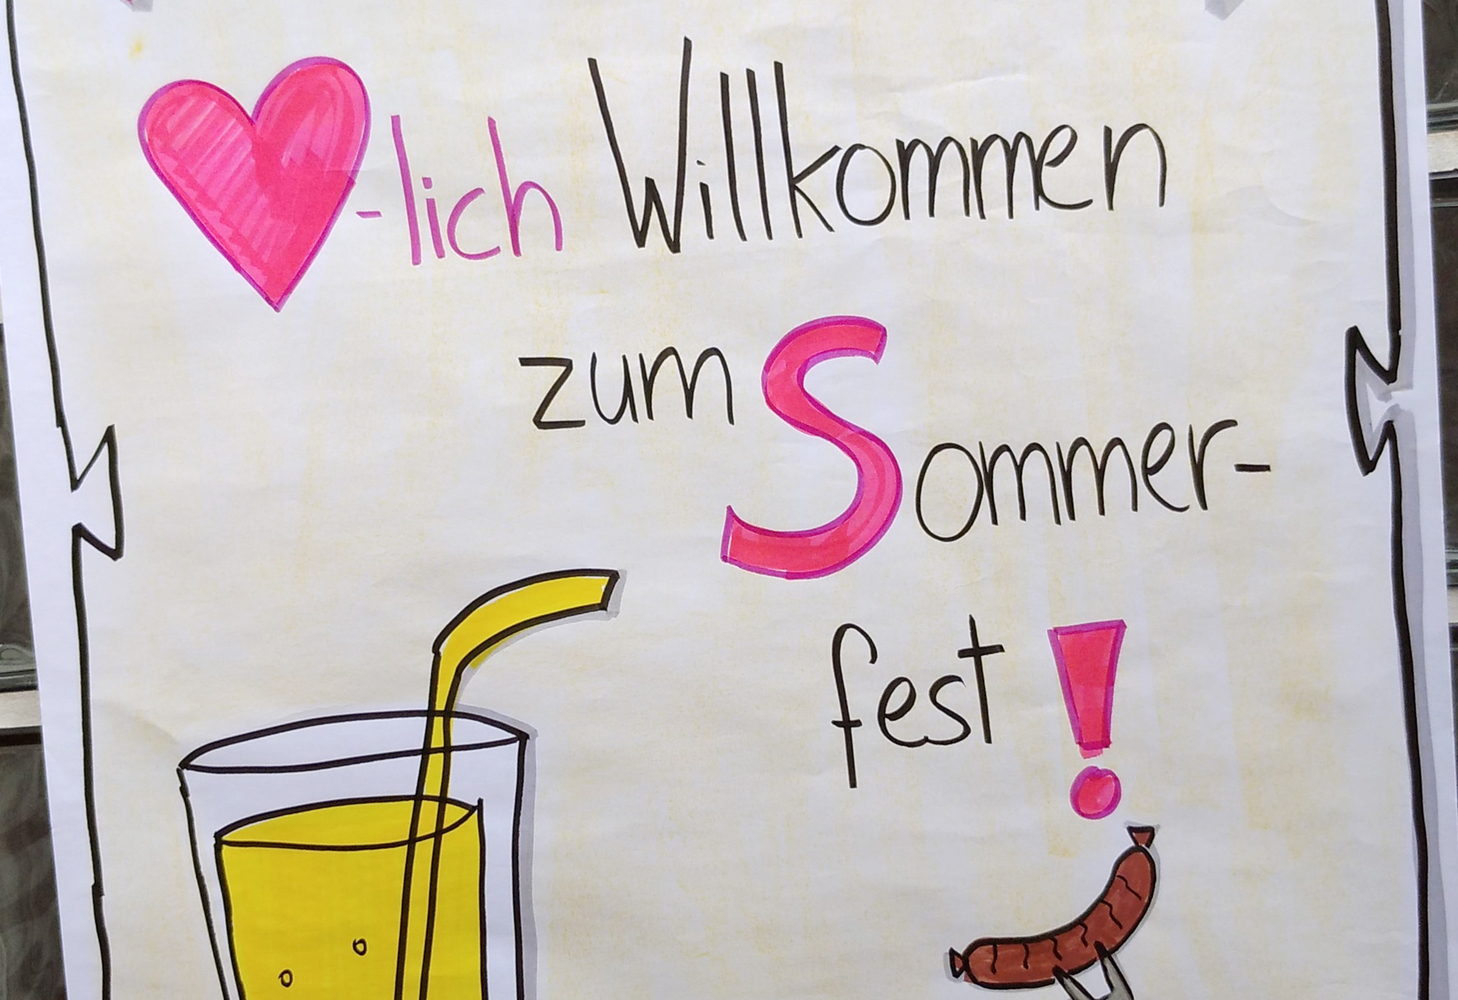 -lich Willkommen
zum Sommer-
fest!